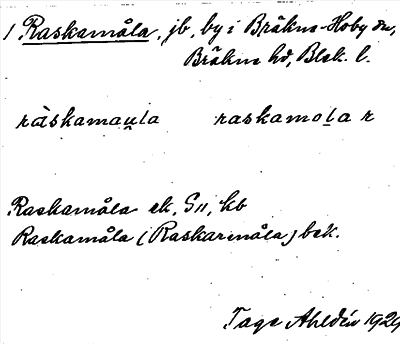 1 Raskamåla, jb, by i Bräkne-Hoby sn,
Bräkne hd, Blek. l.
ràskamau̯la raskamola r
Raskamåla ek, GS, kb
Raskamåla (Raskarmåla) bek.
Tage Ahldén 1929